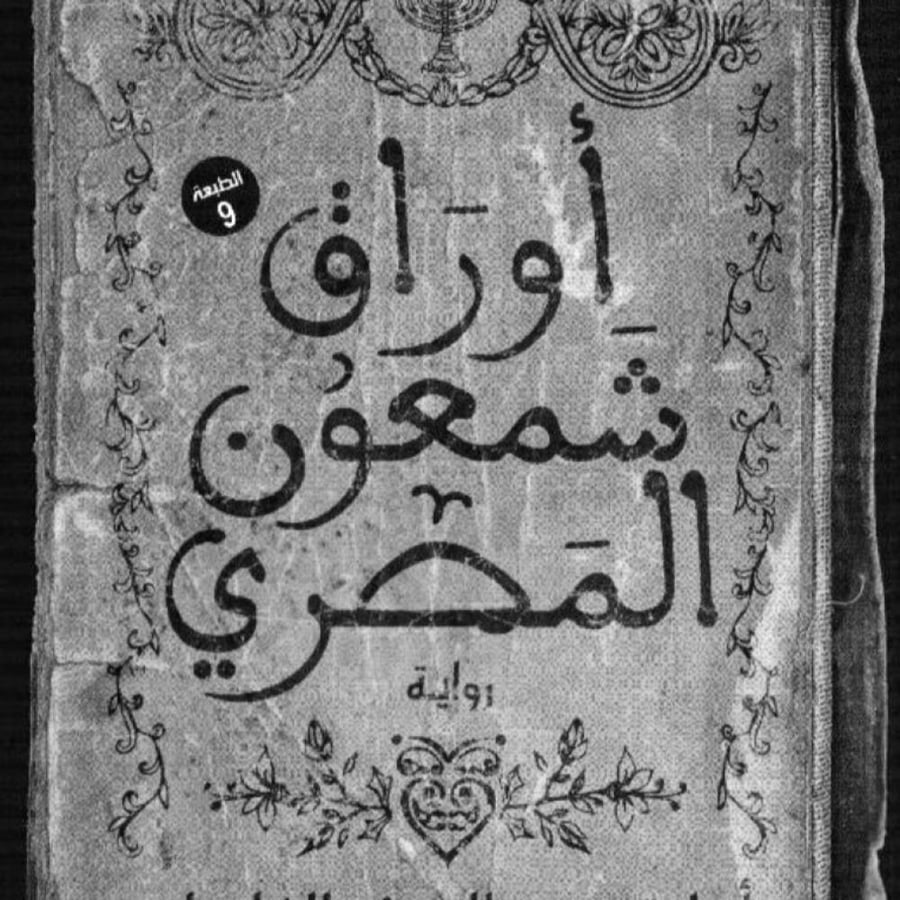 الطبعة
9
أورَاق
شَمعُون
المَصْري
رواية